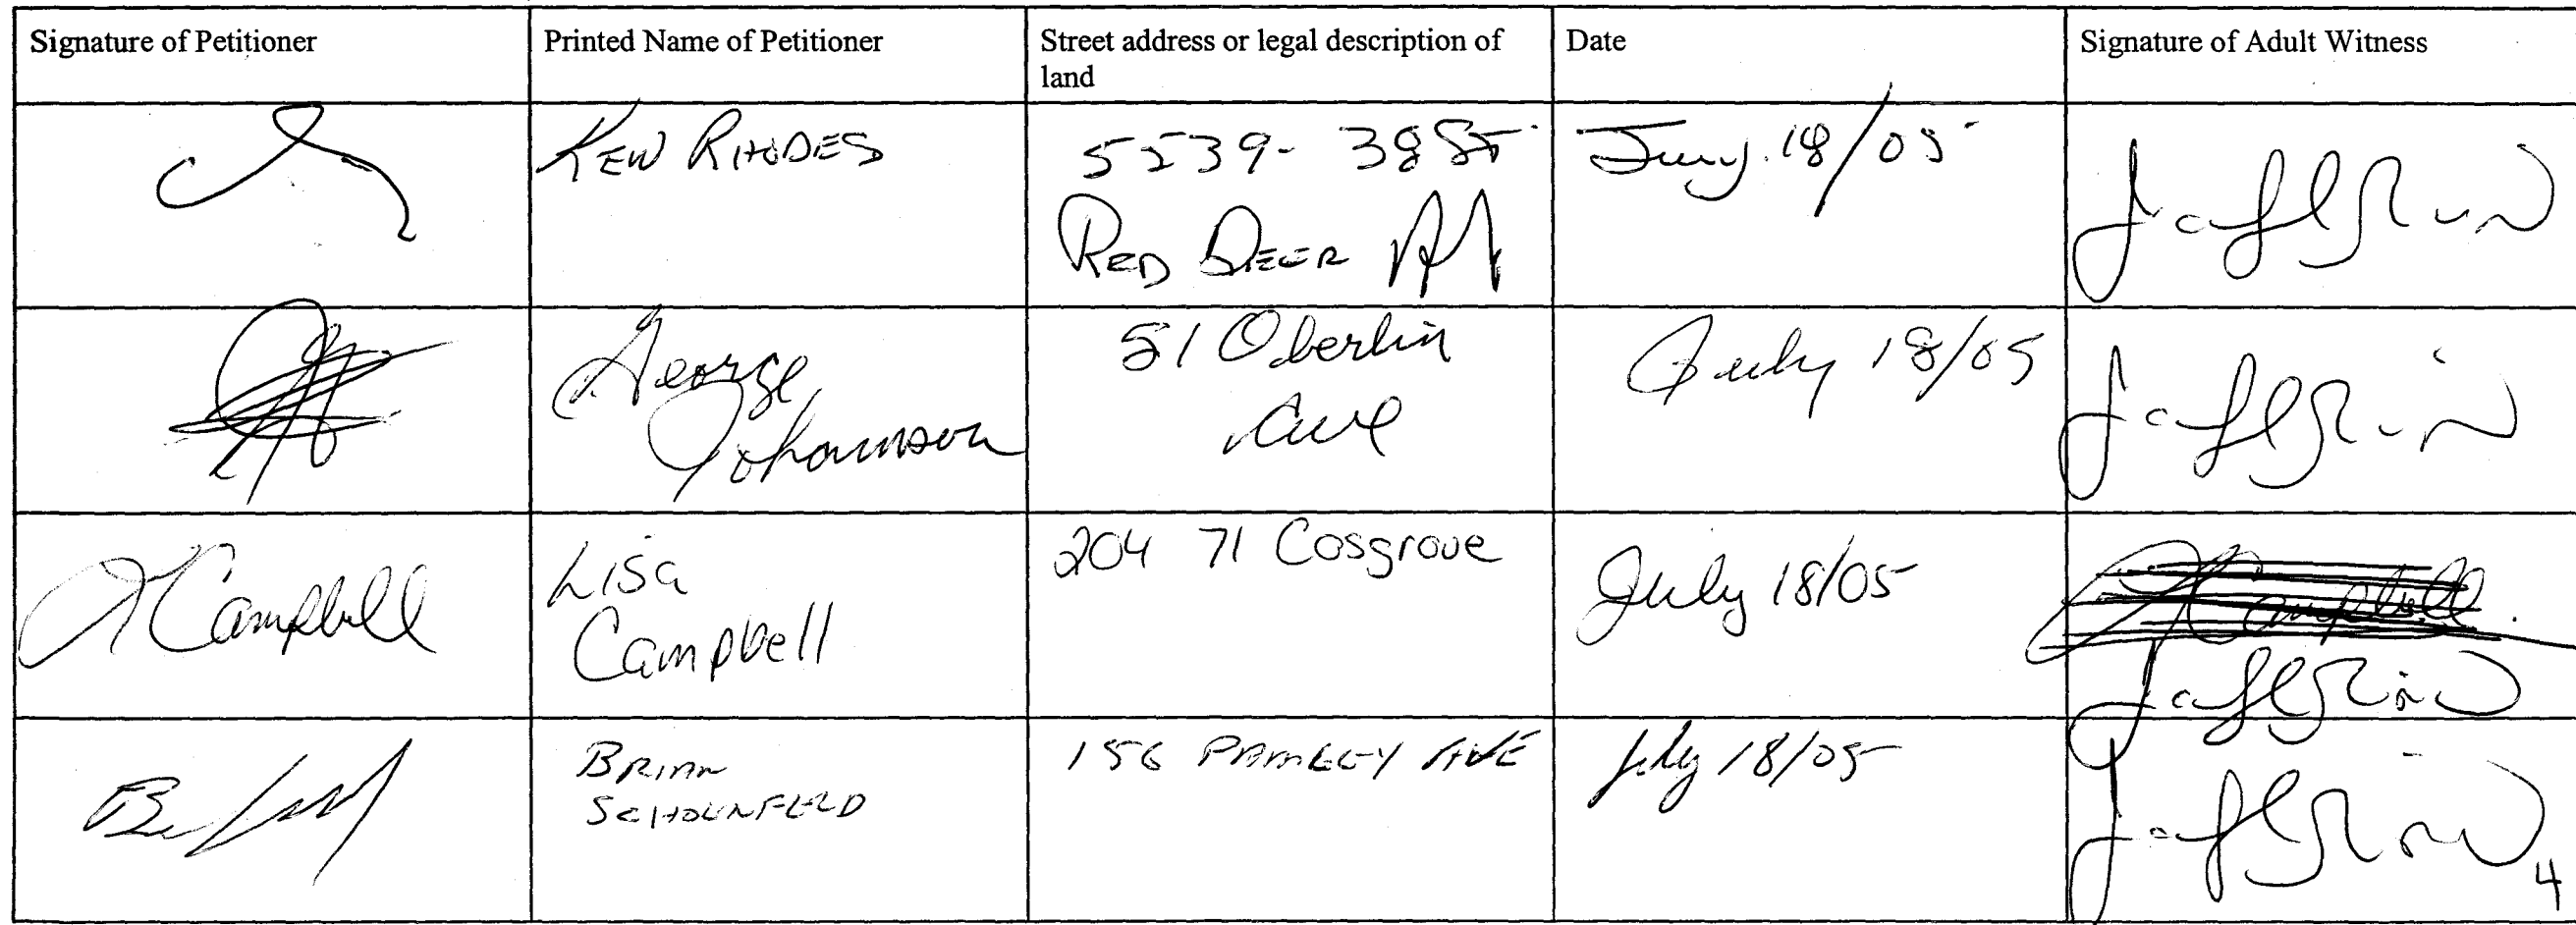 Signature of Petitioner
Printed Name of Petitioner
Street address or legal description of
land
Date
Signature of Adult Witness
KEN RHODES
5539- 38 St
RED DEER
July 18/05
George
Johannson
51 Oberlin
Ave
July 18/05
LCampbell
Lisa
Campbell
204 71 Cosgrove
July 18/05
LCampbell
BRIAN
156 AVE
July 18/05
4